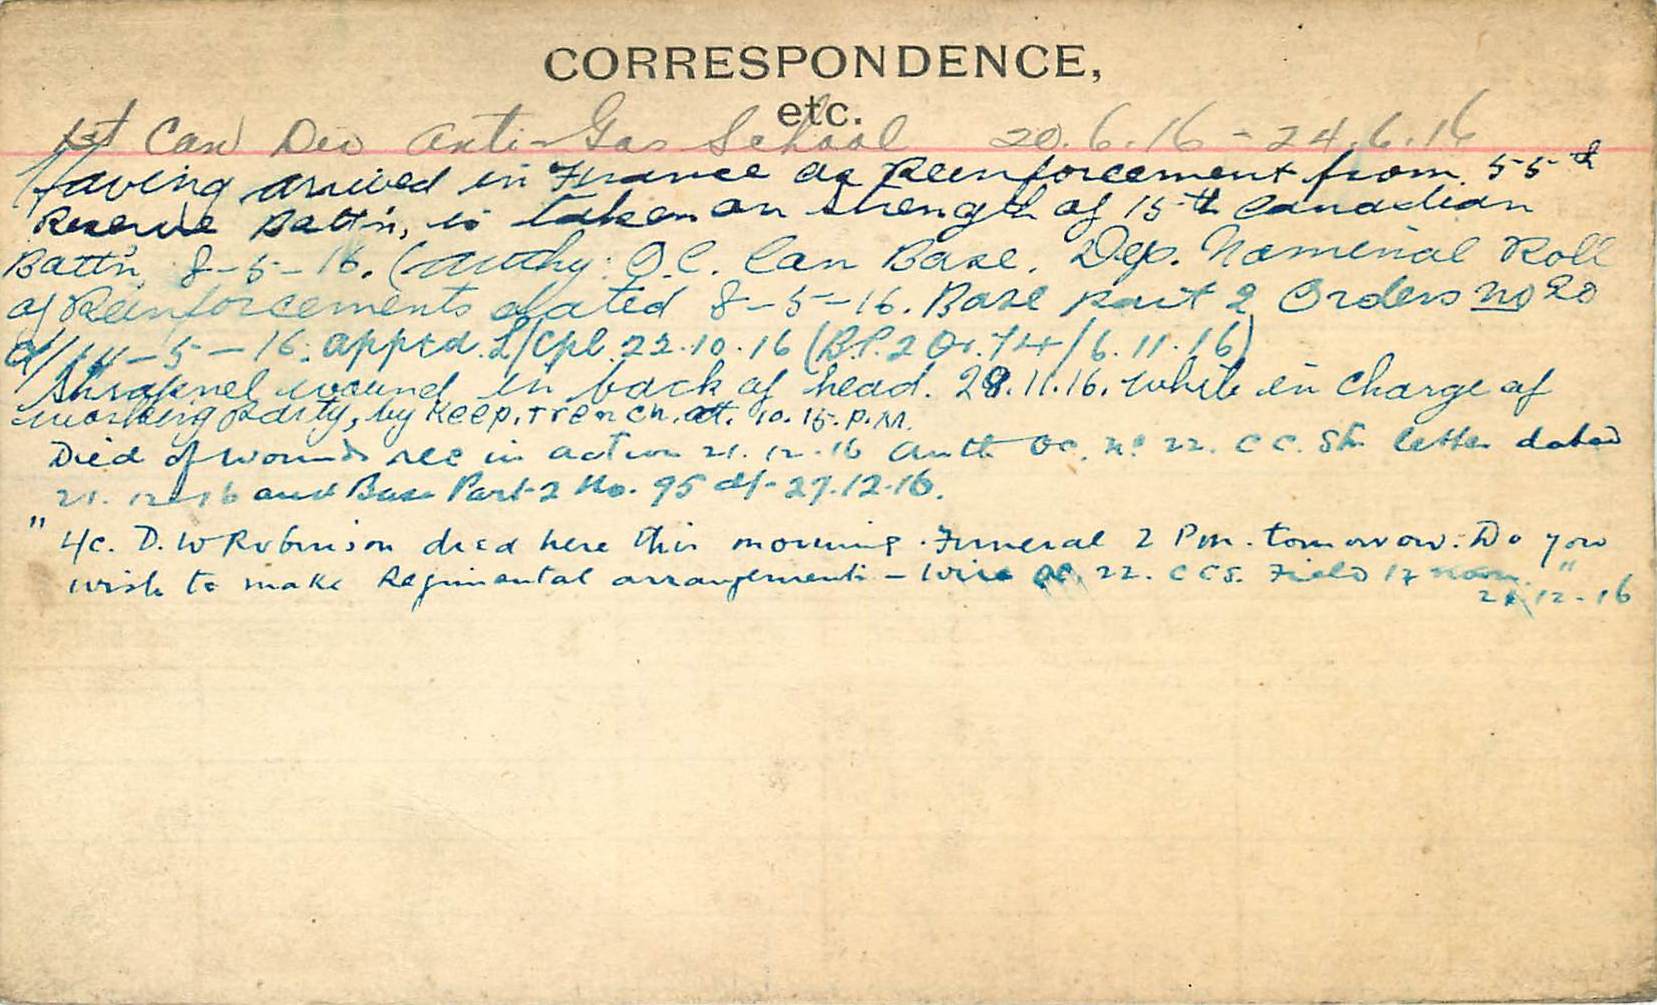 CORRESPONDENCE,
etc.
1st Can Div Anti-Gas School 20.6.16 - 24.6.16
Having arrived in France as Reinforcement from 55th
Reserve Batt'n, is taken on strength of 15th Canadian
Batt'n, 8-5-16. (Authy: O.C. Can Base. Dep. Nominal Roll
of Reinforcements dated 8-5-16. Base part 2 Orders no 20
d/14-5-16. appted. L/Cpl. 22.10.16 (B.P.2 Or. 74/6.11.16)
Shrapnel wound in back of head. 28.11.16. While in charge of
working party, by Keep. Trench. at. 10.15. P.M.
Died of wounds rec in action 21.12.16 Auth OC. No 22. C C. Stn letter dated
21.12.16 and Base Part-2 No. 95 d/- 27.12.16.
" L/c. D. W Robinson died here this morning. Funeral 2 Pm. tomorrow. Do you
wish to make Regimental arrangements - Wire OC, 22. C C S. Field 17 "
21.12-16